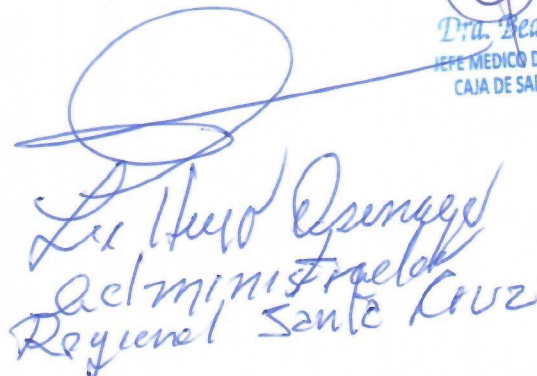 Dra. Bea
JEFE MEDICO D
CAJA DE SAL
Hugo
administrador
Regional Santa Cruz